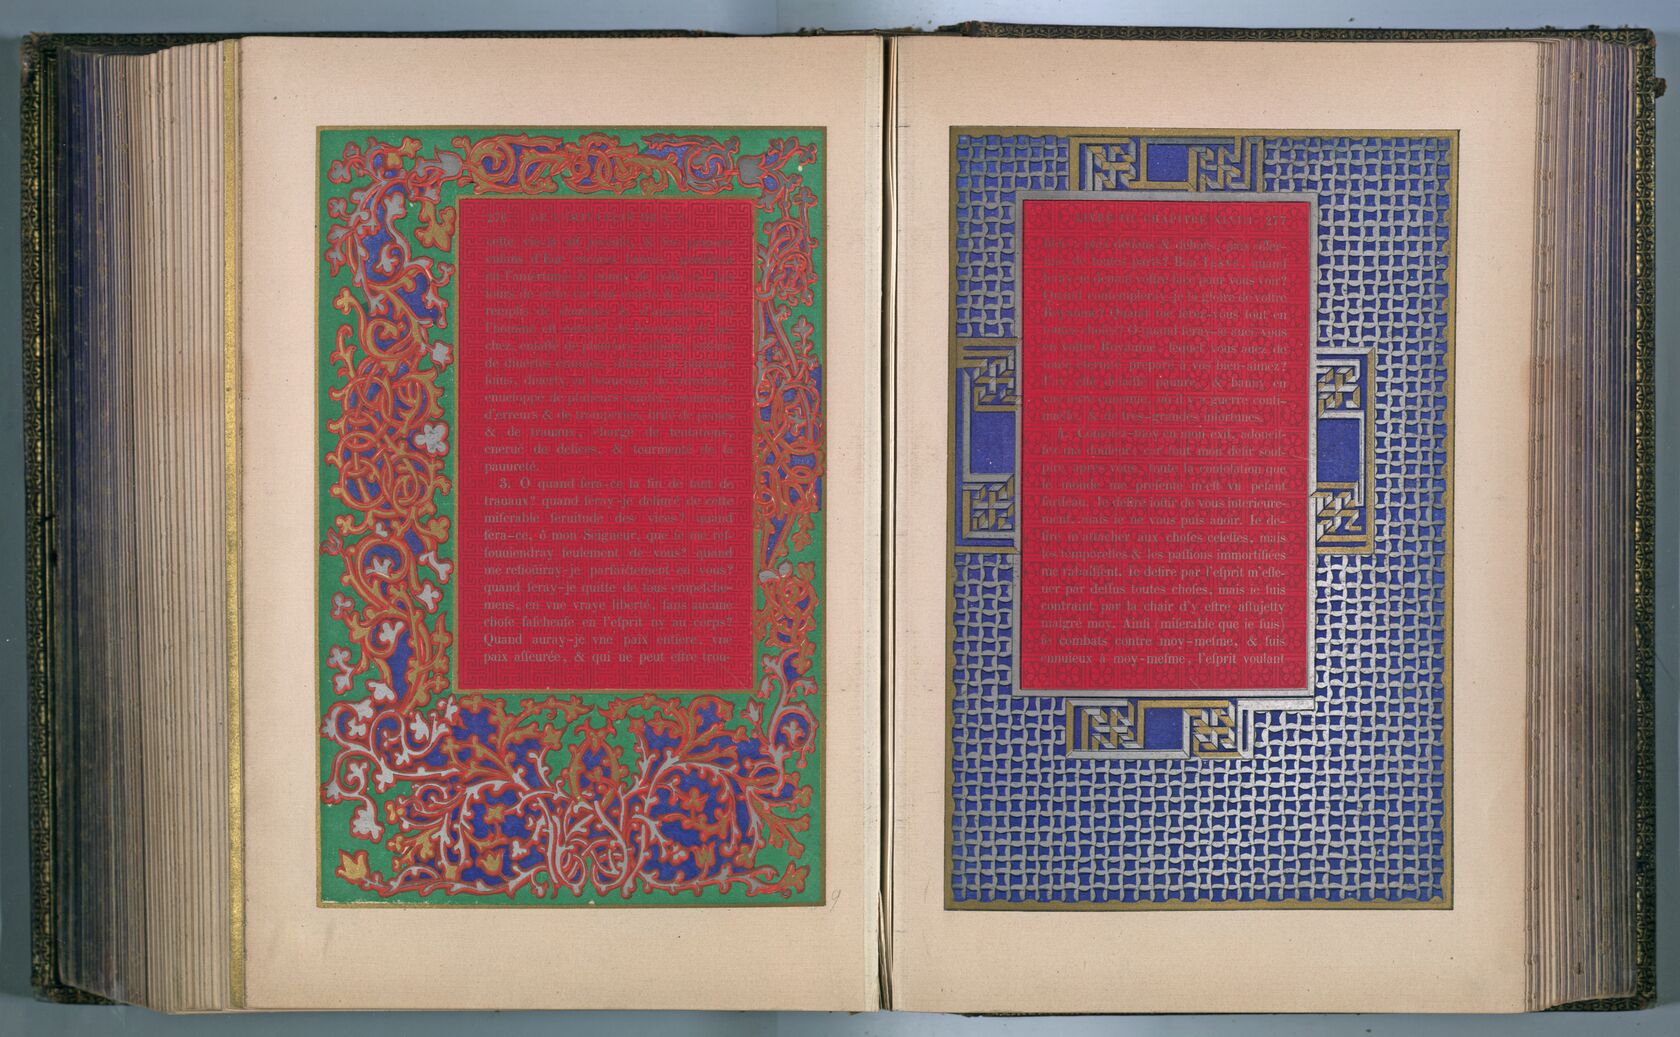 276 DE L'IMITATION DE J. C.
cette vie-là est passé, & les pauures
enfans d'Eue encores
en l'amertume & ennuy de
iours de cette vie sont courts &
remplis de douleurs & d'angoisses, où
l'homme est entaché de beaucoup de pe-
chez, enlassé de plusieurs passions,
de diuerses craintes, de plusieurs
soins, diuerty en beaucoup de
enueloppé de plusieurs vanitez,
d'erreurs & de tromperies, brisé de peines
& de trauaux, chargé de tentations,
enerué de delices, & tourmenté de la
pauureté.
3. O quand ſera-ce la fin de tant de
trauaux? quand ſeray-je deliuré de cette
miſerable ſeruitude des vices? quand
ſera-ce, ô mon Seigneur, que ie me reſ-
ſouuiendray ſeulement de vous? quand
me reſioüiray-je parfaictement en vous?
quand ſeray-je quitte de tous empeſche-
mens, en vne vraye liberté, ſans aucune
choſe faſcheuſe en l'eſprit ny au corps?
Quand auray-je vne paix entiere, vne
paix aſſeurée, & qui ne peut eſtre trou-
9
LIVRE III, CHAPITRE XLVIII. 277
blée? paix dedans & dehors, paix aſſeu-
rée de toutes parts? Bon IESVS, quand
ſeray-je debout voſtre face pour vous voir?
Quand contempleray-je la gloire de voſtre
Royaume? Quand me ſerez-vous tout en
toutes choſes? O quand ſeray-je auec vous
en voſtre Royaume, lequel vous auez de
toute eternité preparé à vos bien-aimez?
I'ay eſté delaiſſé pauure, & banny en
vne terre ennemie, où il y a guerre conti-
nuelle, & de tres-grandes infortunes.
4. Conſolez-moy en mon exil, adouciſ-
ſez ma douleur; car tout mon deſir souſ-
pire apres vous, toute la conſolation que
le monde me preſente m'eſt vn peſant
fardeau. Ie deſire ioüir de vous interieure-
ment, mais ie ne vous puis auoir. Ie de-
ſire m'attacher aux choſes celeſtes, mais
les temporelles & les paſſions immortifiées
me rabaiſſent. Ie deſire par l'eſprit m'eſle-
uer par deſſus toutes choſes, mais ie ſuis
contraint par la chair d'y eſtre aſſujetty
malgré moy. Ainſi (miſerable que ie ſuis)
ie combats contre moy-meſme, & ſuis
ennuieux à moy-meſme, l'eſprit voulant